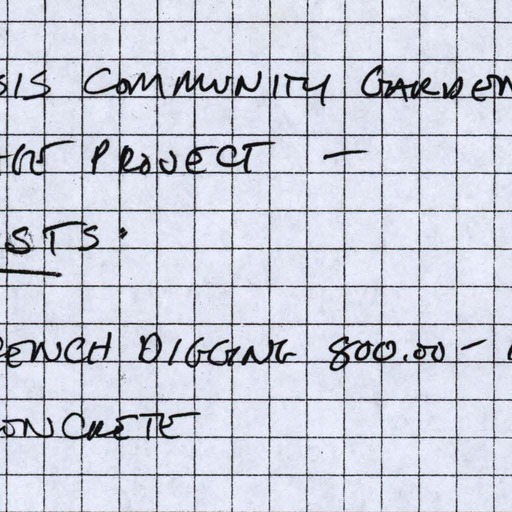 SIS COMMUNITY GARDEN
PROJECT —
STS.
RENCH DIGGING 800.00 –
ONCRETE